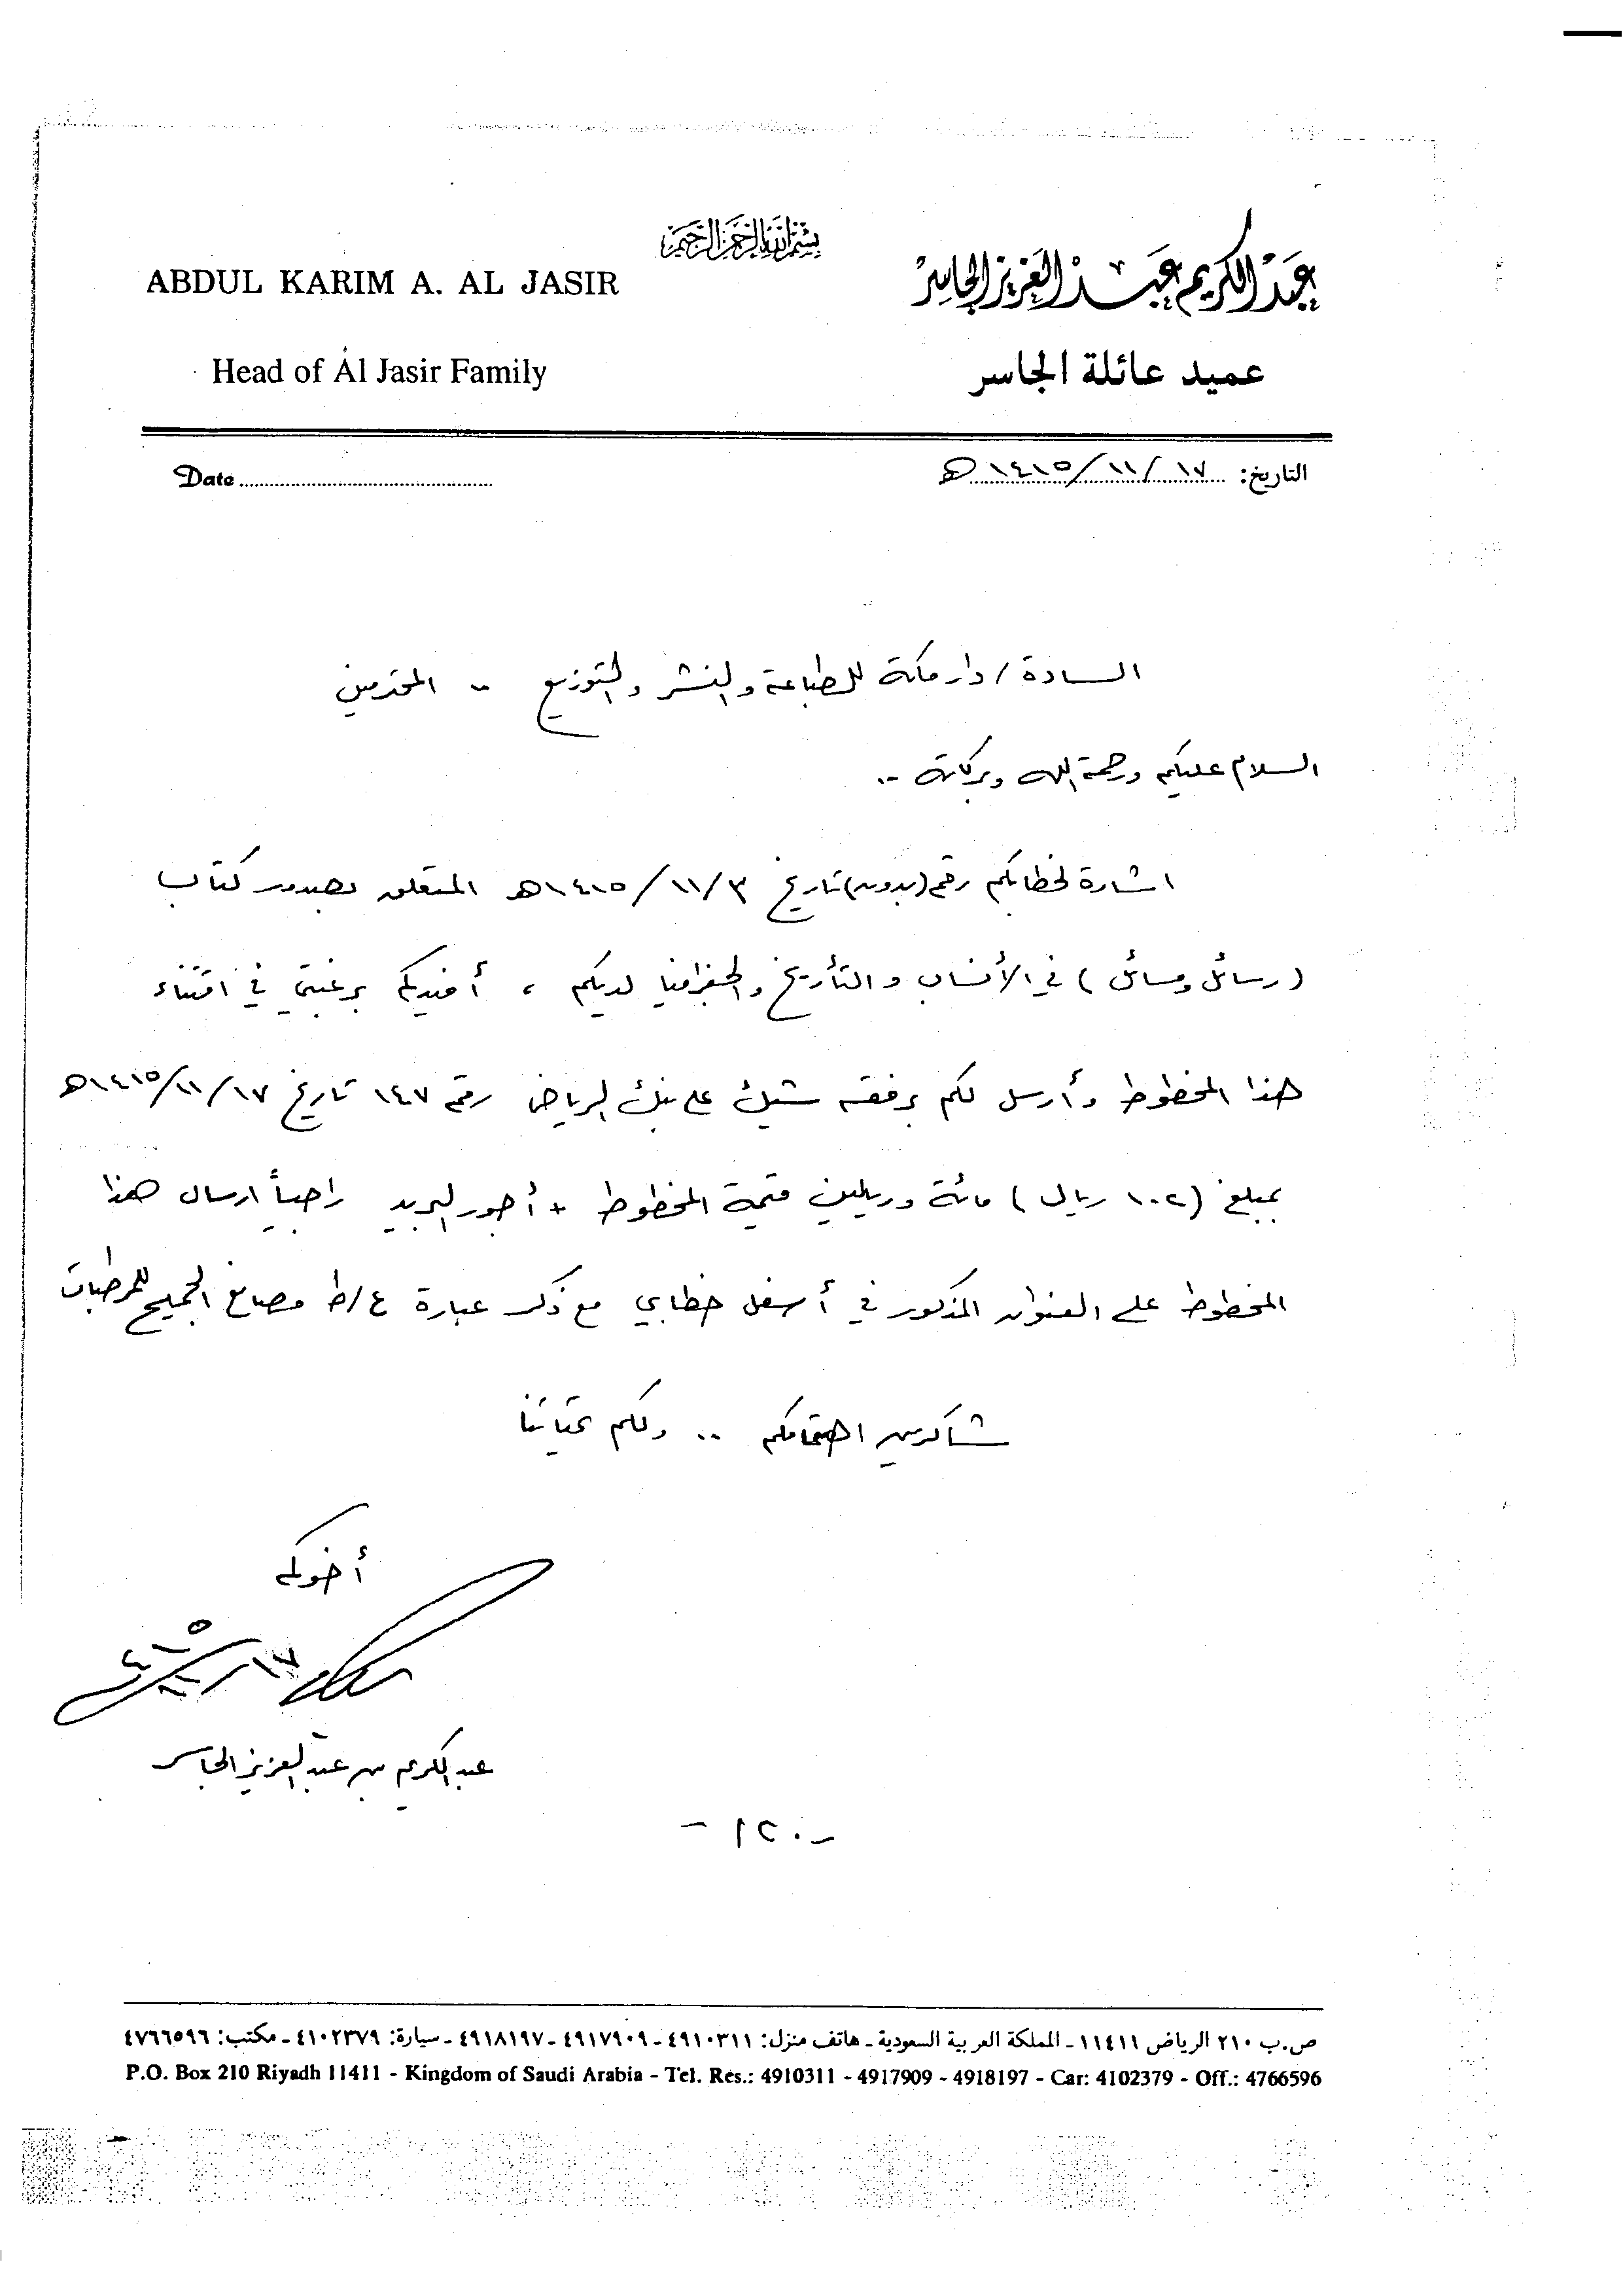 بسم الله الرحمن الرحيم
ABDUL KARIM A. AL JASIR
عبد الكريم عبد العزيز الجاسر
Head of Al Jasir Family
عميد عائلة الجاسر
التاريخ: ١٧/١١/١٤١٥هـ
Date
السادة / دار مكة للطباعة والنشر والتوزيع .. المحترمين
السلام عليكم ورحمة الله وبركاته ..
اشارة لخطابكم رقم (بدون) تاريخ ٣/١١/١٤١٥هـ المتعلق بصدور كتاب
(رسائل ومسائل) في الأنساب والتأريخ والجغرافيا لديكم ، أفيدكم برغبتي في اقتناء
هذا المخطوط وأرسل لكم برفقه شيك على بنك الرياض رقم ١٤٧ تاريخ ١٧/١١/١٤١٥هـ
بمبلغ (١٠٢ ريال) مائة وريالين قيمة المخطوط + أجور البريد راجياً ارسال هذا
المخطوط على العنوان المذكور في أسفل خطابي مع ذكر عبارة ع/ط مصانع الجميح للمرطبات
شاكرين اهتمامكم .. ولكم تحياتنا
أخوكم
١٧/١١/١٤١٥
عبدالكريم بن عبدالعزيز الجاسر
- ١٢٠ -
ص.ب ٢١٠ الرياض ١١٤١١ - المملكة العربية السعودية - هاتف منزل: ٤٩١٠٣١١ - ٤٩١٧٩٠٩ - ٤٩١٨١٩٧ - سيارة: ٤١٠٢٣٧٩ - مكتب: ٤٧٦٦٥٩٦
P.O. Box 210 Riyadh 11411 - Kingdom of Saudi Arabia - Tel. Res.: 4910311 - 4917909 - 4918197 - Car: 4102379 - Off.: 4766596